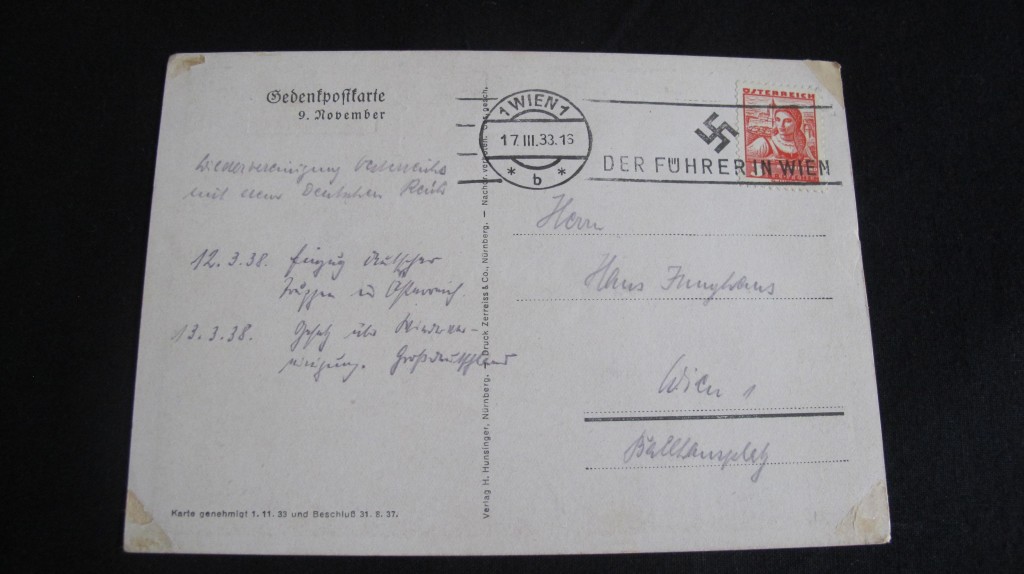 Gedenkpostkarte
9. November
Wiedervereinigung Österreichs
mit dem Deutschen Reich
12.3.38. Einzug deutscher
Truppen in Österreich.
13.3.38. Gesetz über Wiederver-
einigung. Großdeutschland
Karte genehmigt 1. 11. 33 und Beschluß 31. 8. 37.
Verlag H. Hunsinger, Nürnberg. — Druck Zerreiss & Co., Nürnberg. — Nachdr. verboten. Ges. gesch.
1 WIEN 1
17.III.33.16
* b *
DER FÜHRER IN WIEN
ÖSTERREICH
Herrn
Hans Junghans
Wien 1
Ballhausplatz